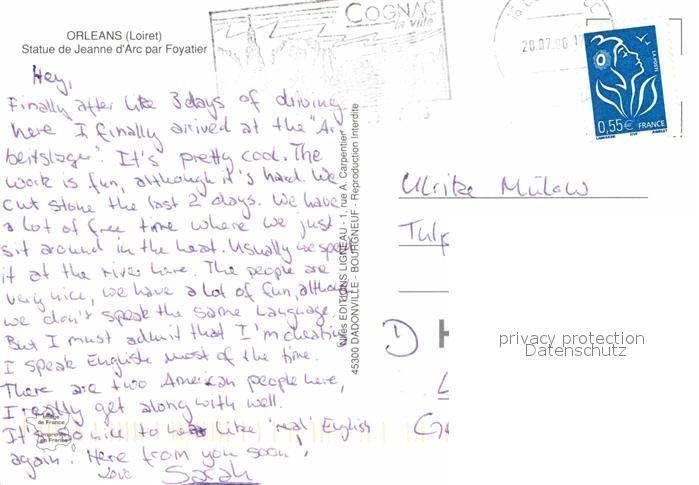 ORLEANS (Loiret)
Statue de Jeanne d'Arc par Foyatier
COGNAC
la ville
20.07.06
LA POSTE
0,55€ FRANCE
Hey,
Finally after like 3 days of driving
here I finally arrived at the "Ar-
beitslager". It's pretty cool. The
work is fun, although it's hard. We
cut stone the last 2 days. We have
a lot of free time where we just
sit around in the heat. Usually we spend
it at the river here. The people are
very nice, we have a lot of fun, although
we don't speak the same language.
But I must admit that I'm cheating
I speak English most of the time.
There are two American people here,
I really get along with well.
It's so nice to hear like 'real' English
again. Here from you soon,
Love Sarah
Image
de France
Editions LIGNEAU - 1, rue A. Carpentier
45300 DADONVILLE - BOURGNEUF - Reproduction Interdite
Ulrike Mülow
Tulp
D
privacy protection
Datenschutz